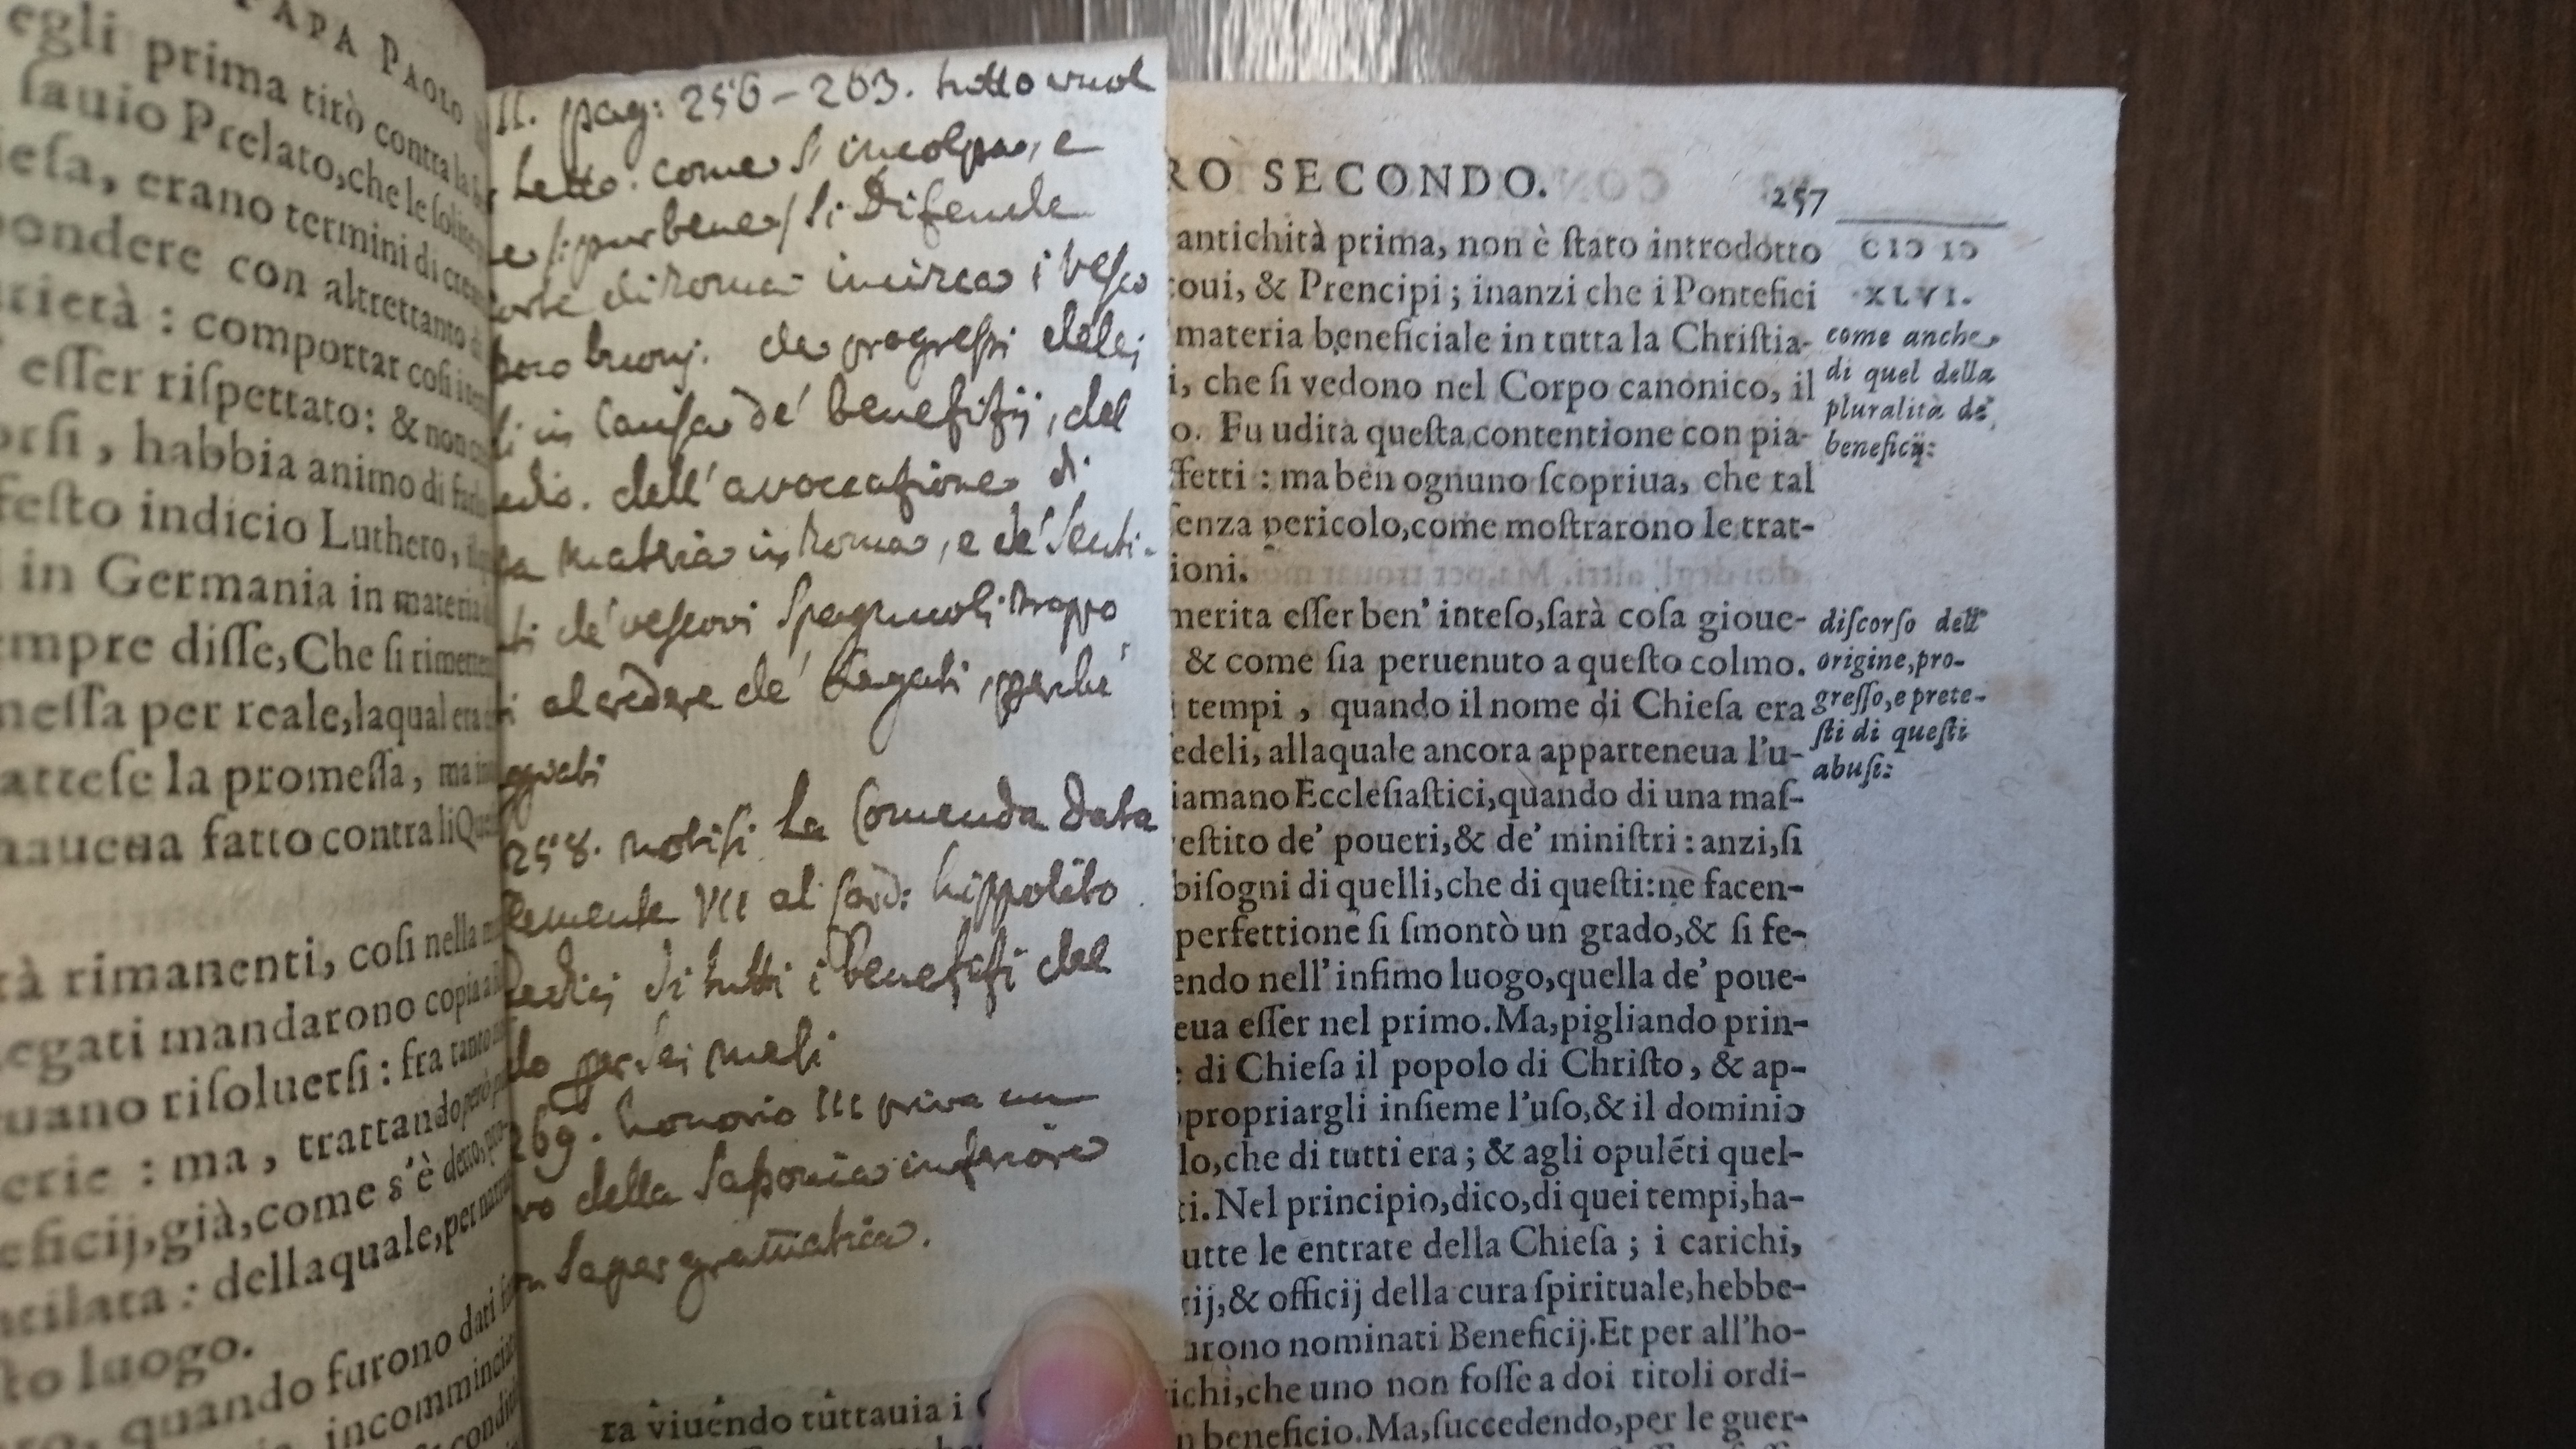 PAPA PAOLO
egli prima tirò contra la
sauio Prelato, che le
iesa, erano termini di
pondere con altrettanto
rietà : comportar così
esser rispettato: & non
orsi, habbia animo di
festo indicio Luthero,
in Germania in materia
empre disse, Che si
messa per reale, laqual era
attese la promessa, ma
aaueua fatto contra li
tà rimanenti, così nella
egati mandarono copia
uano risoluersi : fra tanto
erie : ma, trattando però
eficij, già, come s'è detto,
ntilata : dellaquale, per
sto luogo.
ro, quando furono dati
incomminci
II. pag: 256 – 263. tutto vuol
letto. come s'incolpa, e
e /: pur bene / si difende
orte di Roma incirca i Vesco
pero buoni. de progressi delli
in Causa de' benefitij, del
edio. dell'avoccatione di
materia in Roma, e de' senti-
ti de' vescovi Spagnuoli troppo
al credere de' Legati, perche
egati
258. notisi la Comenda data
lemente VII al Card: hippolito
edici di tutti i benefifi del
do per sei mesi
269. honorio III priva un
vo della Saponia inferiore
n saper gramatica.
ra viuendo tuttauia i
RO SECONDO. 257
antichità prima, non è stato introdotto
coui, & Prencipi ; inanzi che i Pontefici
materia beneficiale in tutta la Christia-
i, che si vedono nel Corpo canonico, il
o. Fu udita questa contentione con pia-
ffetti : ma ben ognuno scopriua, che tal
senza pericolo, come mostrarono le trat-
ioni.
merita esser ben' inteso, sarà cosa gioue-
& come sia peruenuto a questo colmo.
i tempi , quando il nome di Chiesa era
edeli, allaquale ancora apparteneua l'u-
iamano Ecclesiastici, quando di una mas-
estito de' poueri, & de' ministri : anzi, si
bisogni di quelli, che di questi: ne facen-
perfettione si smontò un grado, & si fe-
endo nell' infimo luogo, quella de' poue-
eua esser nel primo. Ma, pigliando prin-
e di Chiesa il popolo di Christo , & ap-
ppropriargli insieme l'uso, & il dominio
lo, che di tutti era ; & agli opulẽti quel-
ti. Nel principio, dico, di quei tempi, ha-
utte le entrate della Chiesa ; i carichi,
cij, & officij della cura spirituale, hebbe-
urono nominati Beneficij. Et per all'ho-
ichi, che uno non fosse a doi titoli ordi-
n beneficio. Ma, succedendo, per le guer-
CIƆ IƆ
XLVI.
come anche
di quel della
pluralità de'
beneficij:
discorso dell'
origine, pro-
gresso, e prete-
sti di questi
abusi: